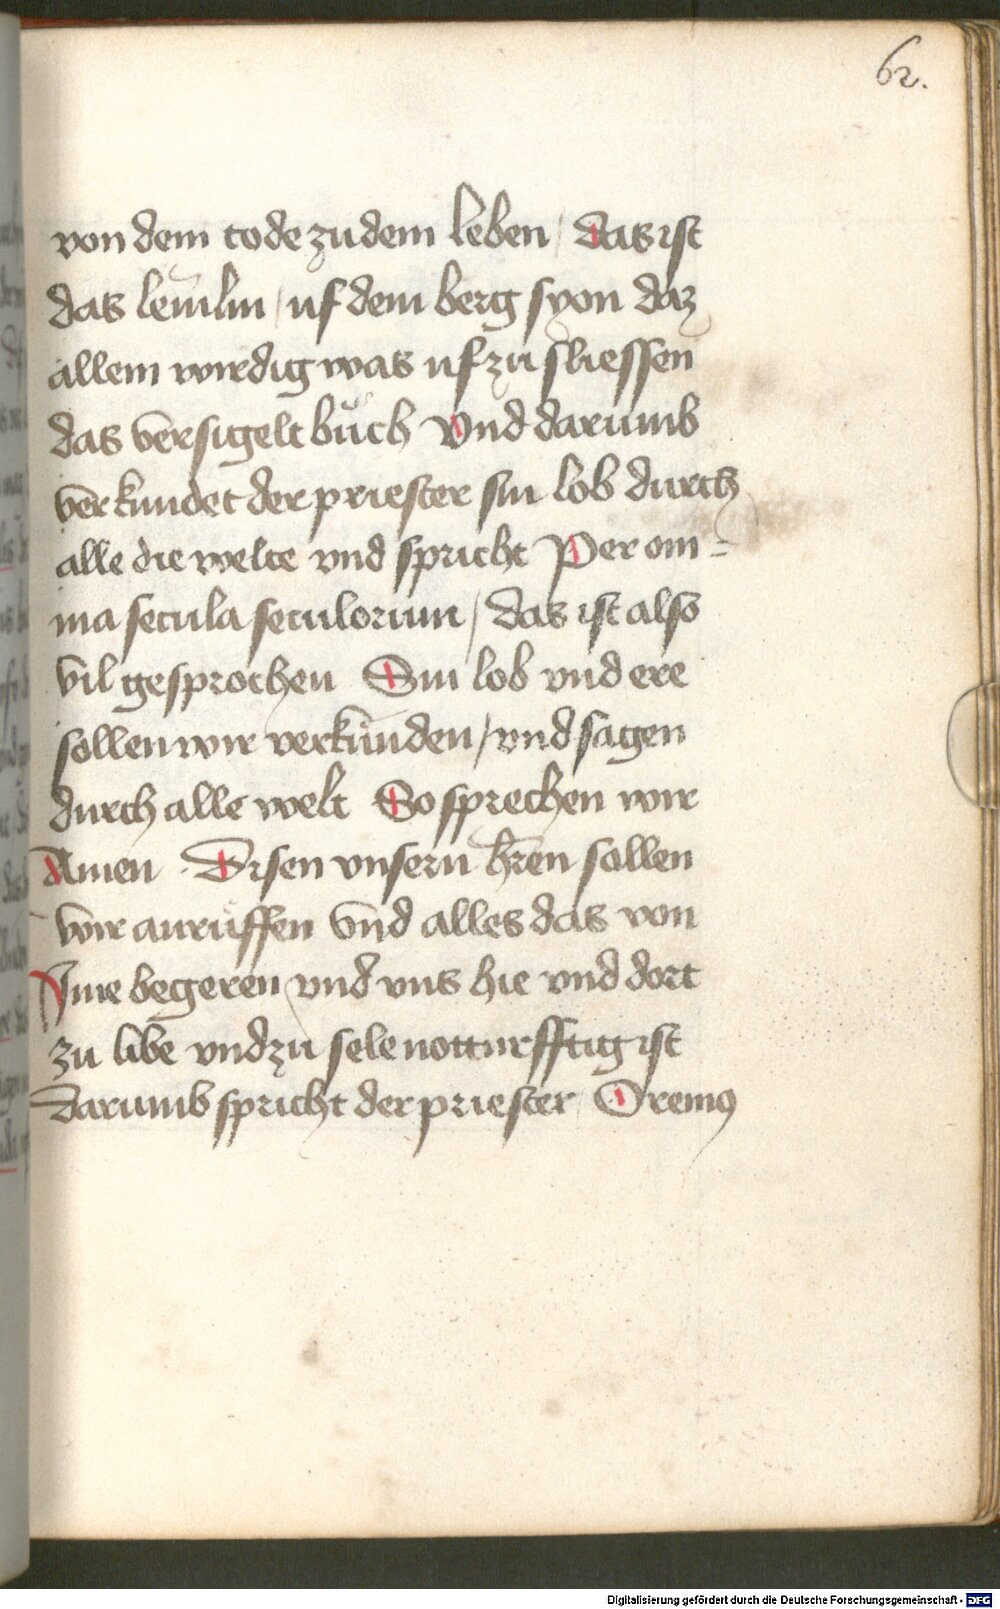 62.
von dem tode zu dem leben / das ist
das lemlin / uf dem berg syon daz
allein wirdig was uf zu sliessen
das versigelt buͦch Vnd darumb
verkundet der priester sin lob durch
alle die welte vnd spricht Per om-
nia secula seculorum / das ist also
vil gesprochen Sin lob vnd ere
sollen wir verkünden / vnd sagen
durch alle welt So sprechen wir
Amen Disen vnsern hren sollen
wir anrüffen vnd alles das von
Ime begeren vnd vns hie vnd dort
zu libe vnd zu sele notturfftig ist
Darumb spricht der priester Oremus
Digitalisierung gefördert durch die Deutsche Forschungsgemeinschaft - DFG